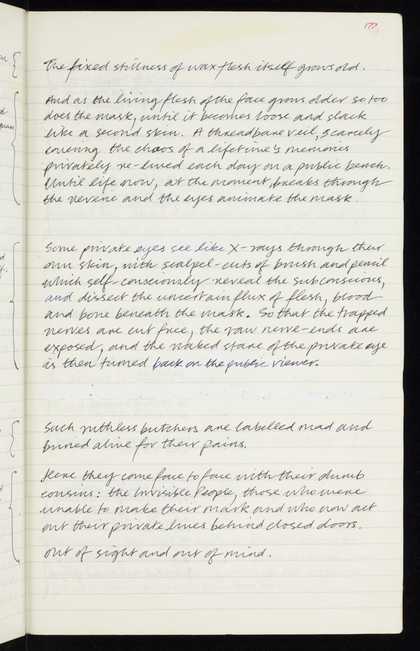 The fixed stillness of wax flesh itself grows old.
And as the living flesh of the face grows older so too
does the mask, until it becomes loose and slack
like a second skin. A threadbare veil, scarcely
covering the chaos of a lifetime's memories
privately re-lived each day on a public bench.
Until life now, at the moment, breaks through
the reverie and the eyes animate the mask.
Some private eyes see like X-rays through their
own skin, with scalpel-cuts of brush and pencil
which self-consciously reveal the subconscious,
and dissect the uncertain flux of flesh, blood
and bone beneath the mask. So that the trapped
nerves are cut free, the raw nerve-ends are
exposed, and the naked stare of the private eye
is then turned back on the public viewer.
Such ruthless butchers are labelled mad and
buried alive for their pains.
Here they come face to face with their dumb
cousins: the Invisible People, those who were
unable to make their mark and who now act
out their private lives behind closed doors.
Out of sight and out of mind.